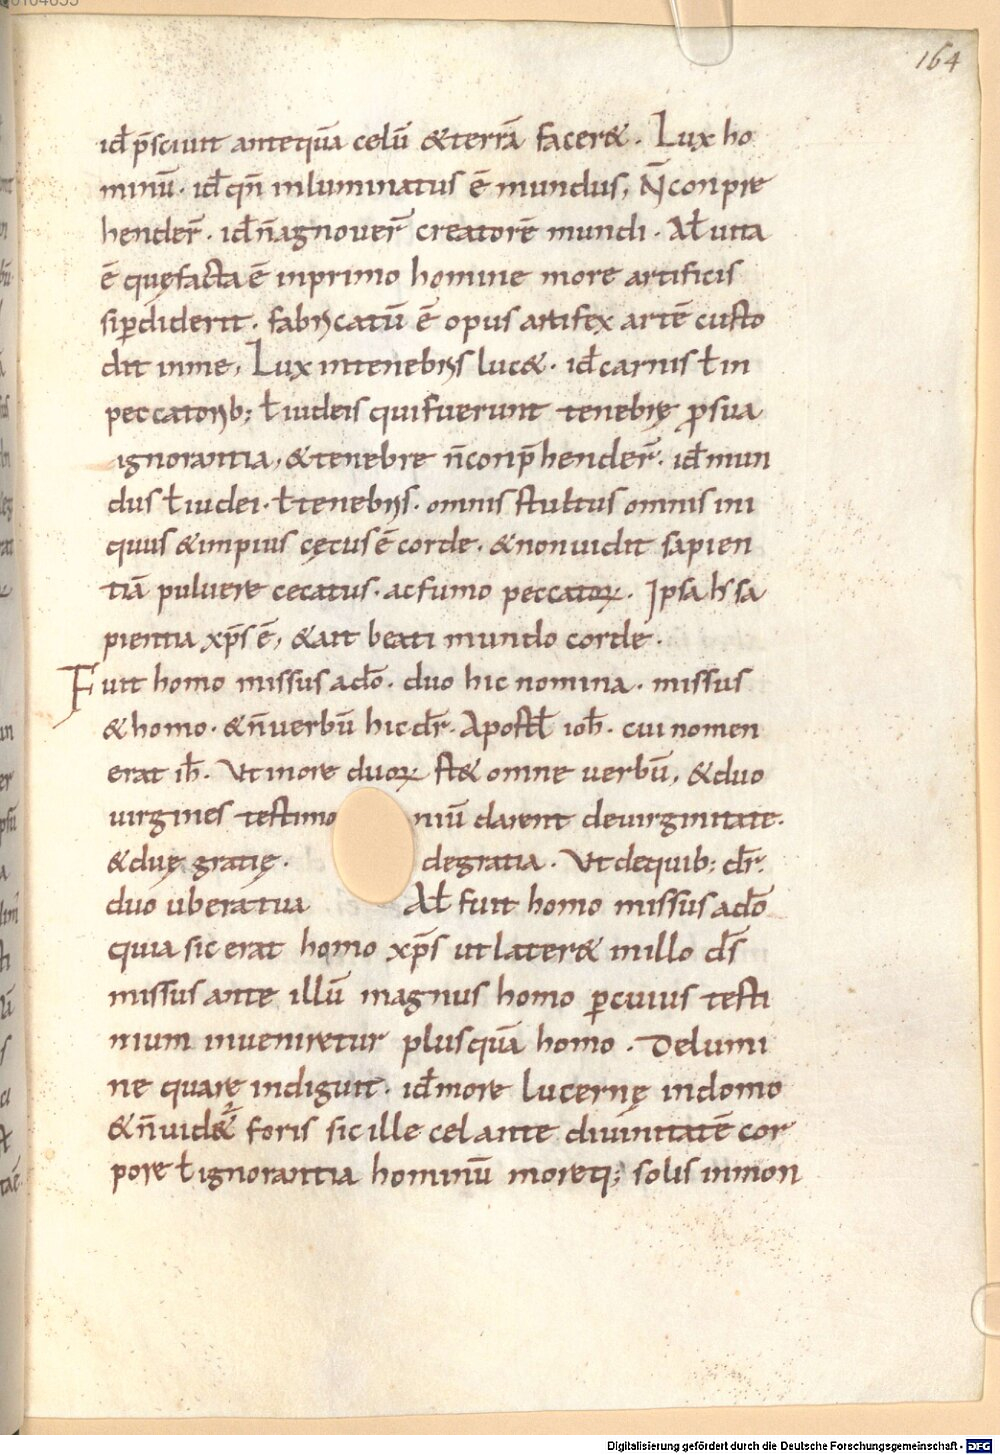 164
id̄ p̄sciuit antequā celū &terrā facer&. Lux ho
minū. id̄ qn̄ inluminatus ē mundus, N̄ conpre
hender̄. id̄ n̄ agnouer̄ creatorē mundi. Al̄ uita
ē quę facta ē inprimo homine more artificis
si ꝑdiderit. fabricatū ē opus artifex artē custo
dit inme, Lux intenebris luc&. id̄ carnis ł in
peccatorib; ł iudeis qui fuerunt tenebrę ꝓ sua
ignorantia, &tenebre n̄ conp̄hender̄. id̄ mun
dus ł iudei. ł tenebris. omnis stultus omnis ini
quus &impius cęcus ē corde. &non uidit sapien
tiā puluere cecatus. ac fumo peccatoꝝ. Ipsa h̄ sa
pientia xp̄s ē, &ait beati mundo corde.
Fuit homo missus ado̅. duo hic nomina. missus
&homo. &n̄ uerbū hic dr̄. Apostł ioh̄. cui nomen
erat ih̄. Ut inore duoꝝ st& omne uerbū, &duo
uirgines testimo niū darent deuirginitate.
&duę gratię. degratia. Ut dequib; dr̄.
duo ubera tua Al̄ fuit homo missus ado̅
quia sic erat homo xp̄s ut later& in illo ds̄
missus ante illū magnus homo ꝑ cuius testi
nium inueniretur plusquā homo. Delumi
ne quare indiguit. id̄ more lucernę indomo
&n̄ uid&ᷣ foris sic ille celante diuinitatē cor
pore ł ignorantia hominū moreq; solis inmon
Digitalisierung gefördert durch die Deutsche Forschungsgemeinschaft - DFG